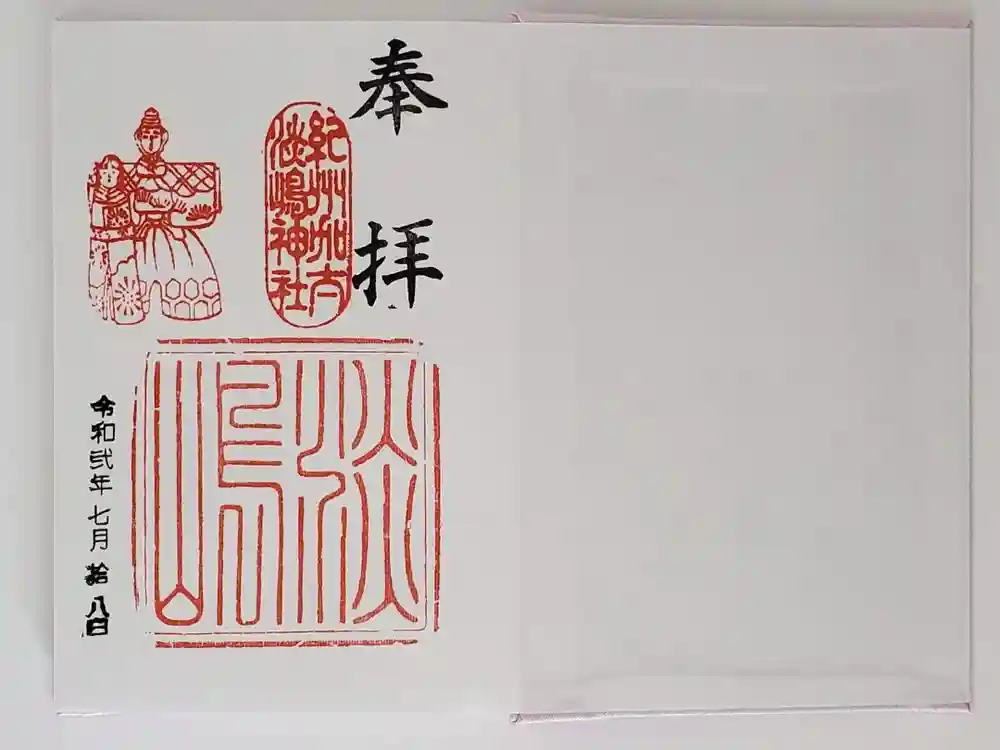 奉拝
紀州加太
淡嶋神社
淡嶋
令和弐年七月拾八日